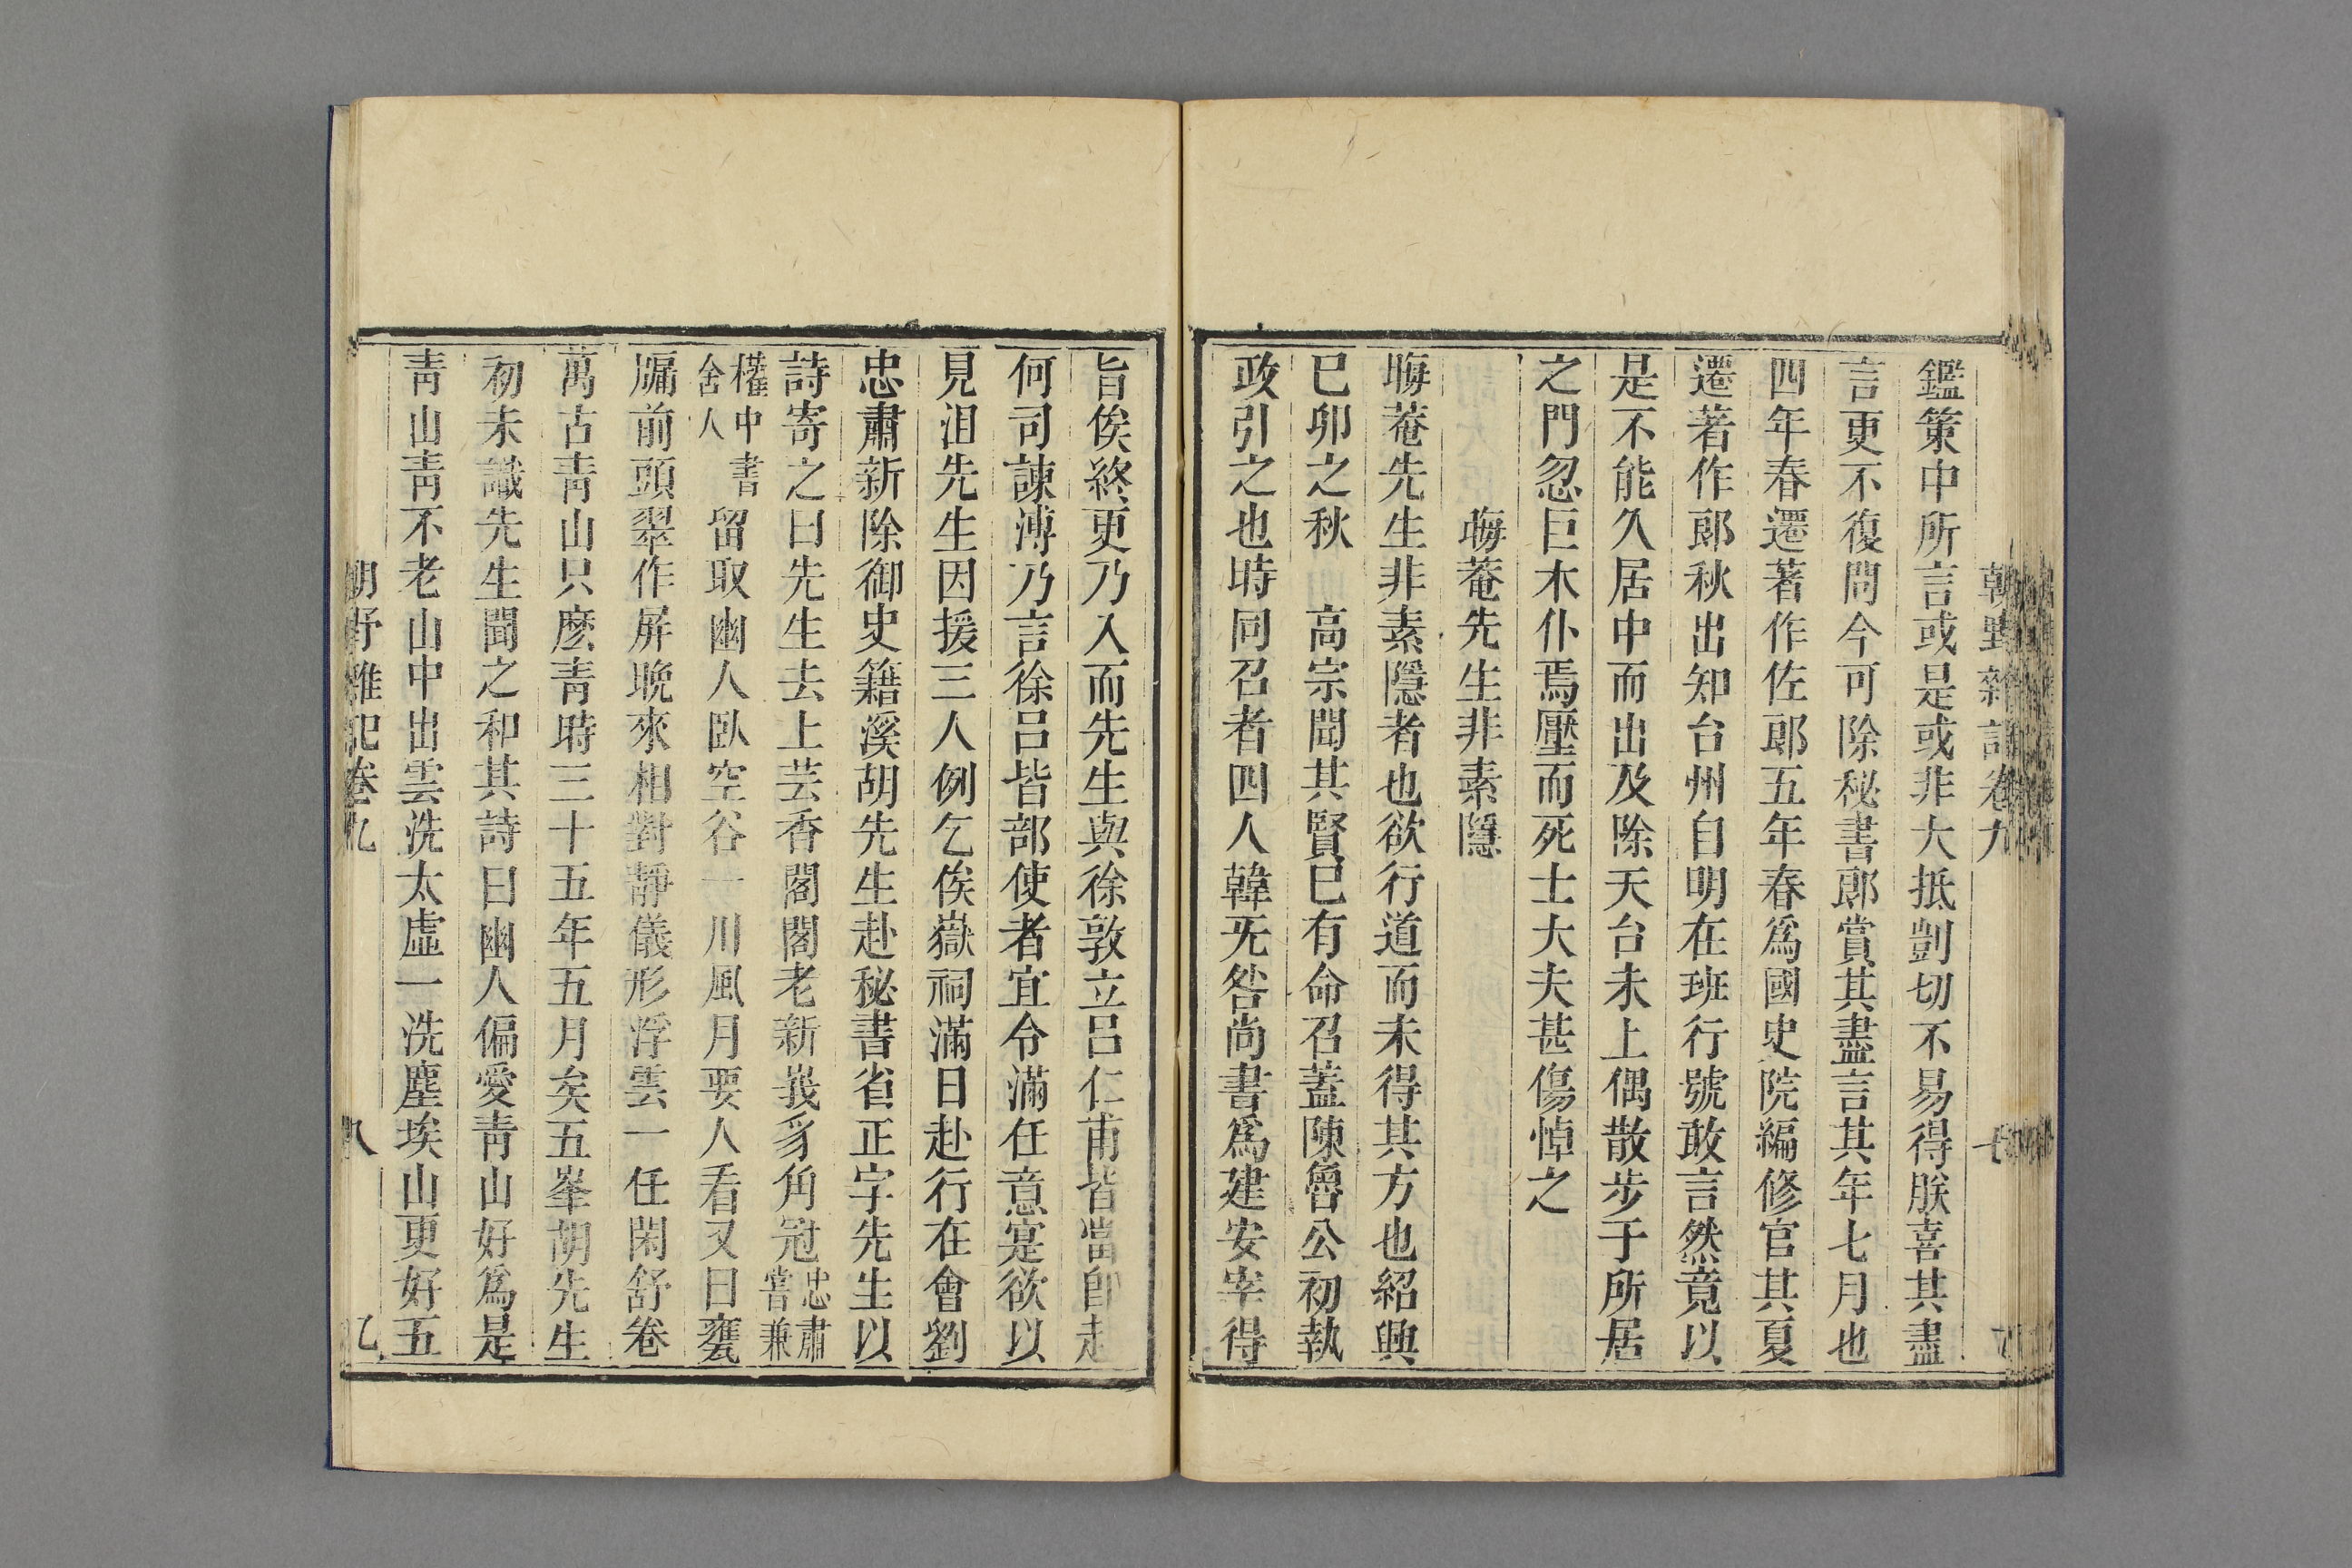 朝野雜記卷九
鑑策中所言或是或非大抵剴切不易得朕喜其盡
言更不復問今可除秘書郎賞其盡言其年七月也
四年春遷著作佐郎五年春爲國史院編修官其夏
遷著作郎秋出知台州自明在班行號敢言然竟以
是不能久居中而出及除天台未上偶散步于所居
之門忽巨木仆焉壓而死士大夫甚傷悼之
晦菴先生非素隱
晦菴先生非素隱者也欲行道而未得其方也紹興
巳卯之秋 高宗聞其賢巳有命召蓋陳魯公初執
政引之也時同召者四人韓旡咎尚書爲建安宰得
旨俟終更乃入而先生與徐敦立呂仁甫皆當卽赴
何司諫溥乃言徐呂皆部使者宜令滿任意寔欲以
見沮先生因援三人例乞俟嶽祠滿日赴行在會劉
忠肅新除御史籍溪胡先生赴秘書省正字先生以
詩寄之曰先生去上芸香閣閣老新峩豸角冠忠肅嘗兼
權中書舍人留取幽人臥空谷一川風月要人看又曰甕
牖前頭翠作屏晚來相對靜儀形浮雲一任閑舒卷
萬古青山只麽青時三十五年五月矣五峯胡先生
初未識先生聞之和其詩曰幽人偏愛青山好爲是
青山青不老山中出雲洗太虛一洗塵埃山更好五
朝野雜記卷九 八